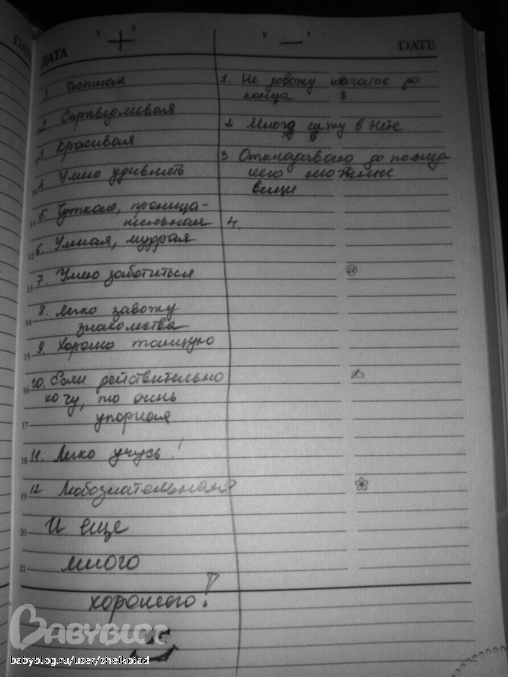 ДАТА "+" "—" DATE
1. Честная
2. Справедливая
3. Красивая
4. Умею удивлять
5. Чуткая, проница-
тельная
6. Умная, мудрая
7. Умею заботиться
8. Легко завожу
знакомства
9. Хорошо танцую
10. Если действительно
хочу, то очень
упорная
11. Легко учусь!
12. Любознательная
И еще
много
хорошего!
1. Не довожу начатое до
конца
2. Много сижу в нете
3. Откладываю до послед-
него сложные
вещи
4.
BABYBLOG